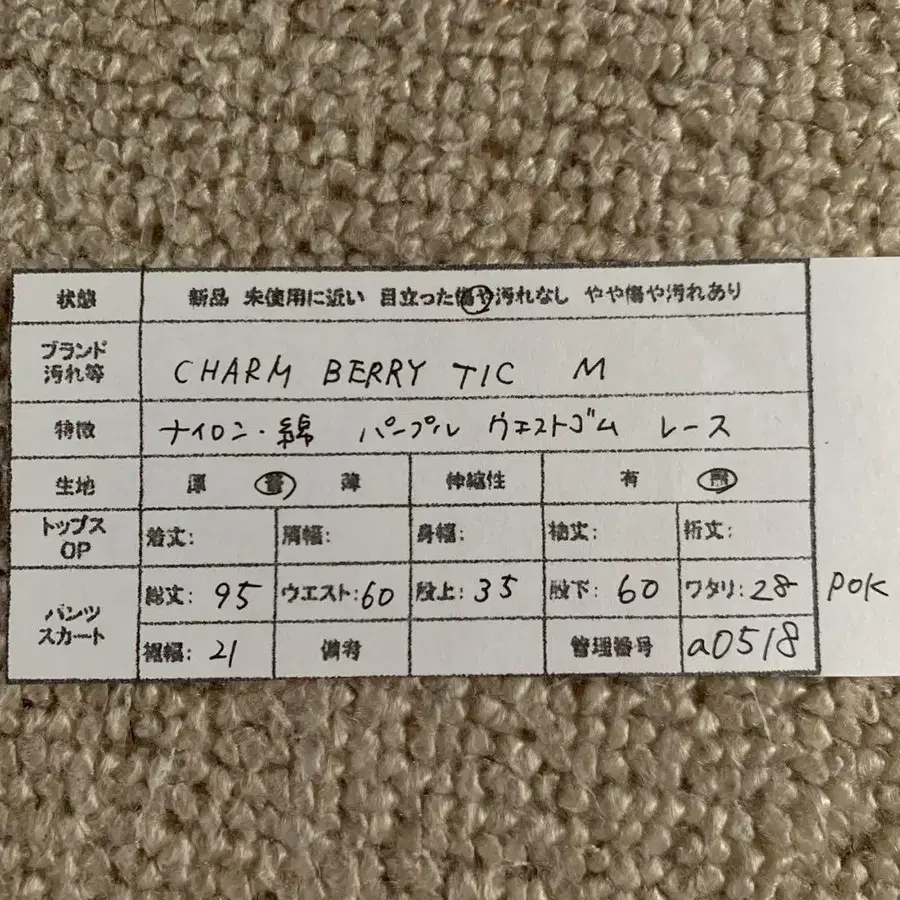 状態 新品 未使用に近い 目立った傷や汚れなし やや傷や汚れあり
ブランド
汚れ等 CHARM BERRY TIC M
特徴 ナイロン・綿 パープル ウエストゴム レース
生地 厚 普 薄 伸縮性 有 無
トップス
OP 着丈: 肩幅: 身幅: 袖丈: 裄丈:
パンツ
スカート 総丈: 95 ウエスト: 60 股上: 35 股下: 60 ワタリ: 28 POK
裾幅: 21 備考 管理番号 a0518